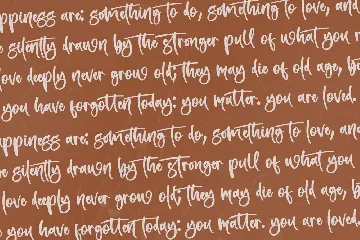 ppiness are: something to do, something to love, and
e silently drawn by the stronger pull of what you r
love deeply never grow old; they may die of old age, b
you have forgotten today: you matter. you are loved.
appiness are: something to do, something to love, an
re silently drawn by the stronger pull of what you
love deeply never grow old; they may die of old age, b
you have forgotten today: you matter. you are loved.